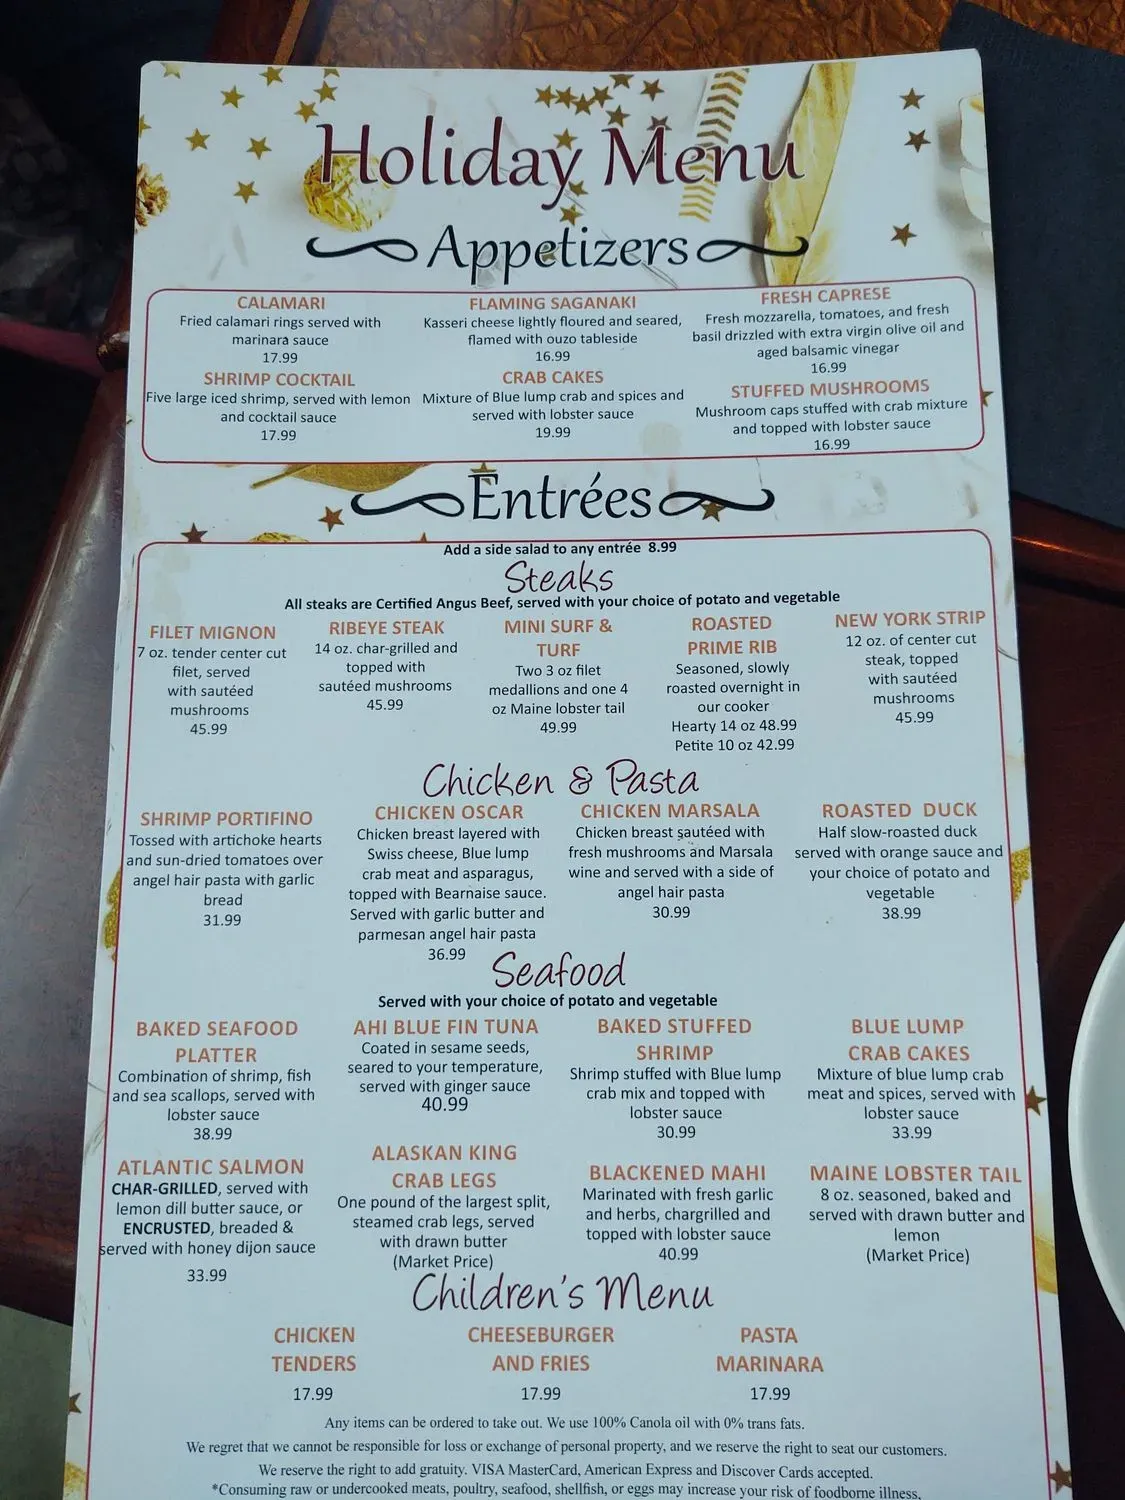 Holiday Menu
Appetizers
CALAMARI
Fried calamari rings served with
marinara sauce
17.99
FLAMING SAGANAKI
Kasseri cheese lightly floured and seared,
flamed with ouzo tableside
16.99
FRESH CAPRESE
Fresh mozzarella, tomatoes, and fresh
basil drizzled with extra virgin olive oil and
aged balsamic vinegar
16.99
SHRIMP COCKTAIL
Five large iced shrimp, served with lemon
and cocktail sauce
17.99
CRAB CAKES
Mixture of Blue lump crab and spices and
served with lobster sauce
19.99
STUFFED MUSHROOMS
Mushroom caps stuffed with crab mixture
and topped with lobster sauce
16.99
Entrées
Add a side salad to any entrée 8.99
Steaks
All steaks are Certified Angus Beef, served with your choice of potato and vegetable
FILET MIGNON
7 oz. tender center cut
filet, served
with sautéed
mushrooms
45.99
RIBEYE STEAK
14 oz. char-grilled and
topped with
sautéed mushrooms
45.99
MINI SURF &
TURF
Two 3 oz filet
medallions and one 4
oz Maine lobster tail
49.99
ROASTED
PRIME RIB
Seasoned, slowly
roasted overnight in
our cooker
Hearty 14 oz 48.99
Petite 10 oz 42.99
NEW YORK STRIP
12 oz. of center cut
steak, topped
with sautéed
mushrooms
45.99
Chicken & Pasta
SHRIMP PORTIFINO
Tossed with artichoke hearts
and sun-dried tomatoes over
angel hair pasta with garlic
bread
31.99
CHICKEN OSCAR
Chicken breast layered with
Swiss cheese, Blue lump
crab meat and asparagus,
topped with Bearnaise sauce.
Served with garlic butter and
parmesan angel hair pasta
36.99
CHICKEN MARSALA
Chicken breast sautéed with
fresh mushrooms and Marsala
wine and served with a side of
angel hair pasta
30.99
ROASTED DUCK
Half slow-roasted duck
served with orange sauce and
your choice of potato and
vegetable
38.99
Seafood
Served with your choice of potato and vegetable
BAKED SEAFOOD
PLATTER
Combination of shrimp, fish
and sea scallops, served with
lobster sauce
38.99
AHI BLUE FIN TUNA
Coated in sesame seeds,
seared to your temperature,
served with ginger sauce
40.99
BAKED STUFFED
SHRIMP
Shrimp stuffed with Blue lump
crab mix and topped with
lobster sauce
30.99
BLUE LUMP
CRAB CAKES
Mixture of blue lump crab
meat and spices, served with
lobster sauce
33.99
ATLANTIC SALMON
CHAR-GRILLED, served with
lemon dill butter sauce, or
ENCRUSTED, breaded &
served with honey dijon sauce
33.99
ALASKAN KING
CRAB LEGS
One pound of the largest split,
steamed crab legs, served
with drawn butter
(Market Price)
BLACKENED MAHI
Marinated with fresh garlic
and herbs, chargrilled and
topped with lobster sauce
40.99
MAINE LOBSTER TAIL
8 oz. seasoned, baked and
served with drawn butter and
lemon
(Market Price)
Children's Menu
CHICKEN
TENDERS
17.99
CHEESEBURGER
AND FRIES
17.99
PASTA
MARINARA
17.99
Any items can be ordered to take out. We use 100% Canola oil with 0% trans fats.
We regret that we cannot be responsible for loss or exchange of personal property, and we reserve the right to seat our customers.
We reserve the right to add gratuity. VISA MasterCard, American Express and Discover Cards accepted.
*Consuming raw or undercooked meats, poultry, seafood, shellfish, or eggs may increase your risk of foodborne illness,